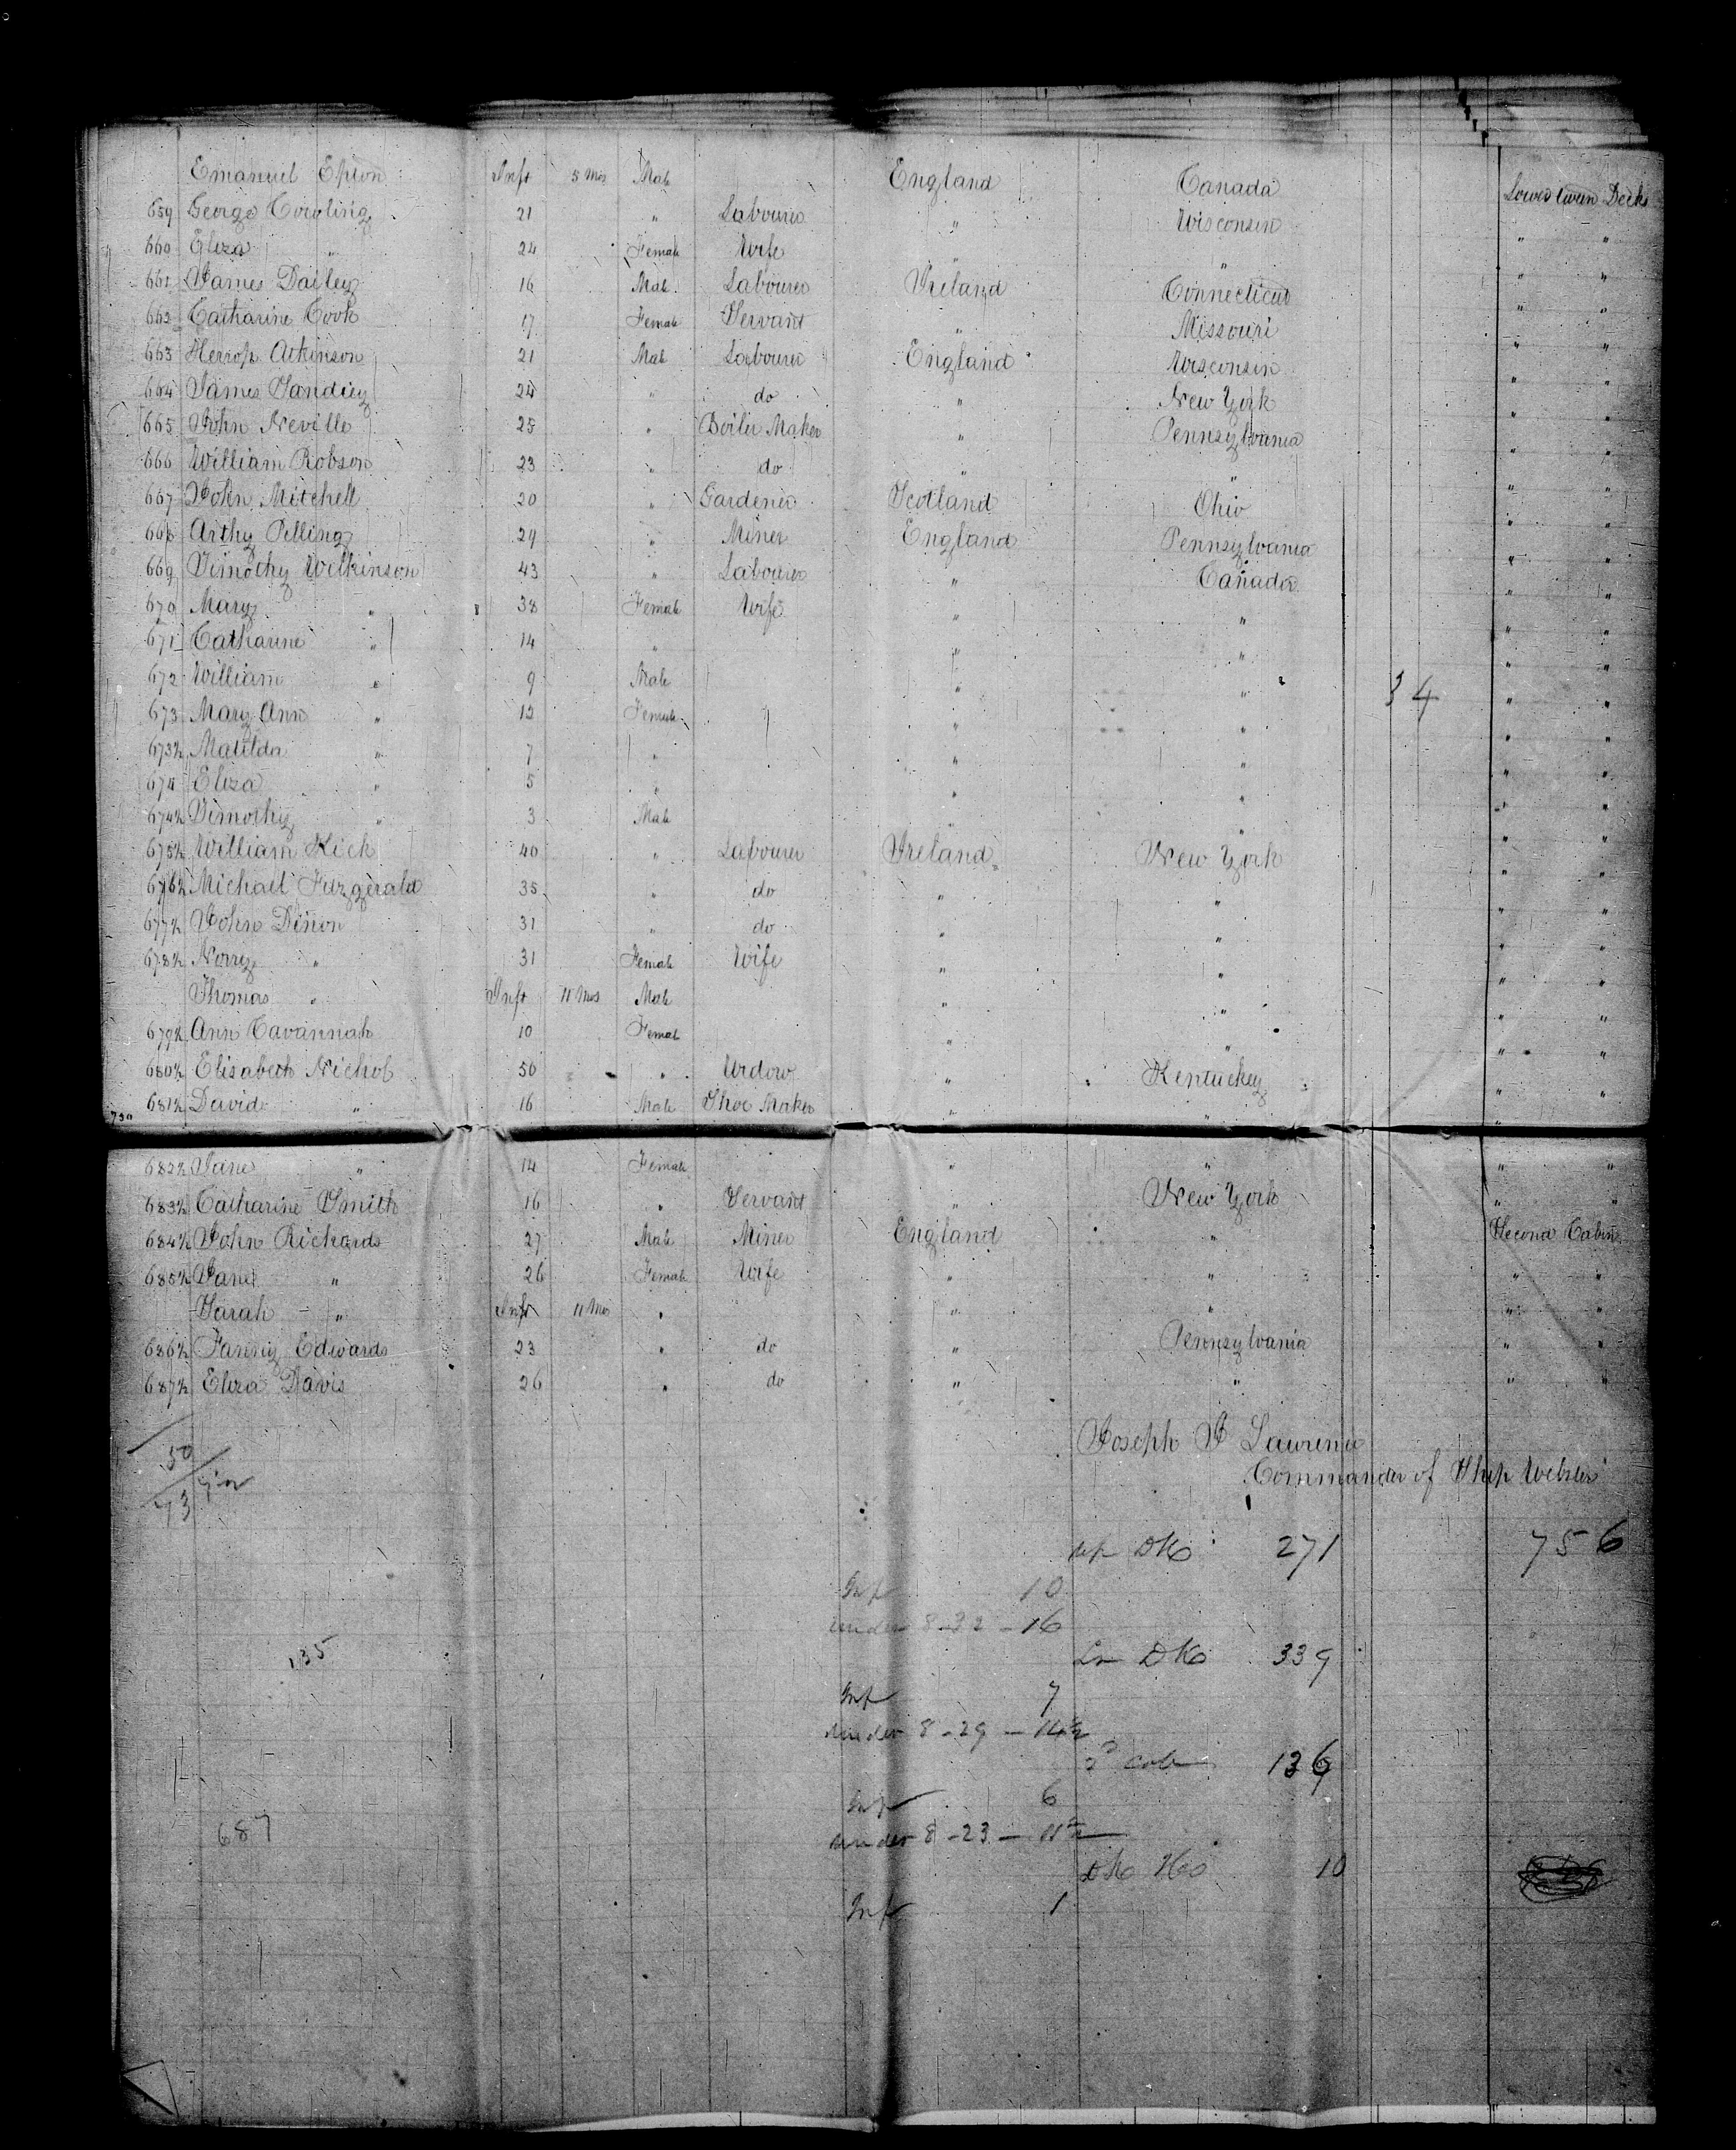 Emanuel Epton Inft 5 Mos Male England Canada Lower tween Decks
659 George Cowling 21 " Labourer " Wisconsin " "
660 Eliza " 24 Female Wife " " " "
661 James Dailey 16 Male Labourer Ireland Connecticut " "
662 Catharine Cook 17 Female Servant " Missouri " "
663 Herrop Atkinson 21 Male Labourer England Wisconsin " "
664 James Tandiey 24 " do " New York " "
665 John Neville 25 " Boiler Maker " Pennsylvania " "
666 William Robson 23 " do " " " "
667 John Mitchell 20 " Gardener Scotland Ohio " "
668 Arthy Pelling 29 " Miner England Pennsylvania " "
669 Timothy Wilkinson 43 " Labourer " Canada " "
670 Mary " 38 Female Wife " " " "
671 Catharine " 14 " " " " "
672 William " 9 Male " " 34 " "
673 Mary Ann " 12 Female " " " "
673½ Matilda " 7 " " " " "
674 Eliza " 5 " " " " "
674½ Timothy " 3 Male " " " "
675½ William Kick 40 " Labourer Ireland New York " "
676½ Michael Fitzgerald 35 " do " " " "
677½ John Dinon 31 " do " " " "
678½ Norry " 31 Female Wife " " " "
Thomas " Inft 11 Mos Male " " " "
679½ Ann Cavannah 10 Female " " " "
680½ Elisabeth Nichol 50 " Widow " Kentucky " "
681½ David " 16 Male Shoe Maker " " "
730
682½ Jane " 14 Female " " " "
683½ Catharine Smith 16 " Servant " New York " "
684½ John Richards 27 Male Miner England " Second Cabin
685½ Jane " 26 Female Wife " " " "
Sarah " Inft 11 Mos " " " " "
686½ Fanny Edwards 23 " do " Pennsylvania " "
687½ Eliza Davis 26 " do " " " "
Joseph J Lawrence
50
Commander of Ship Webster
73
up Dk 271 756
Inf 10
under 8 - 32 - 16
135
Lr Dk 339
Inf 7
under 8 - 29 - 14½
2d cab 136
Inf 6
687
under 8 - 23 - 11½
Dk Ho 10
Inf 1